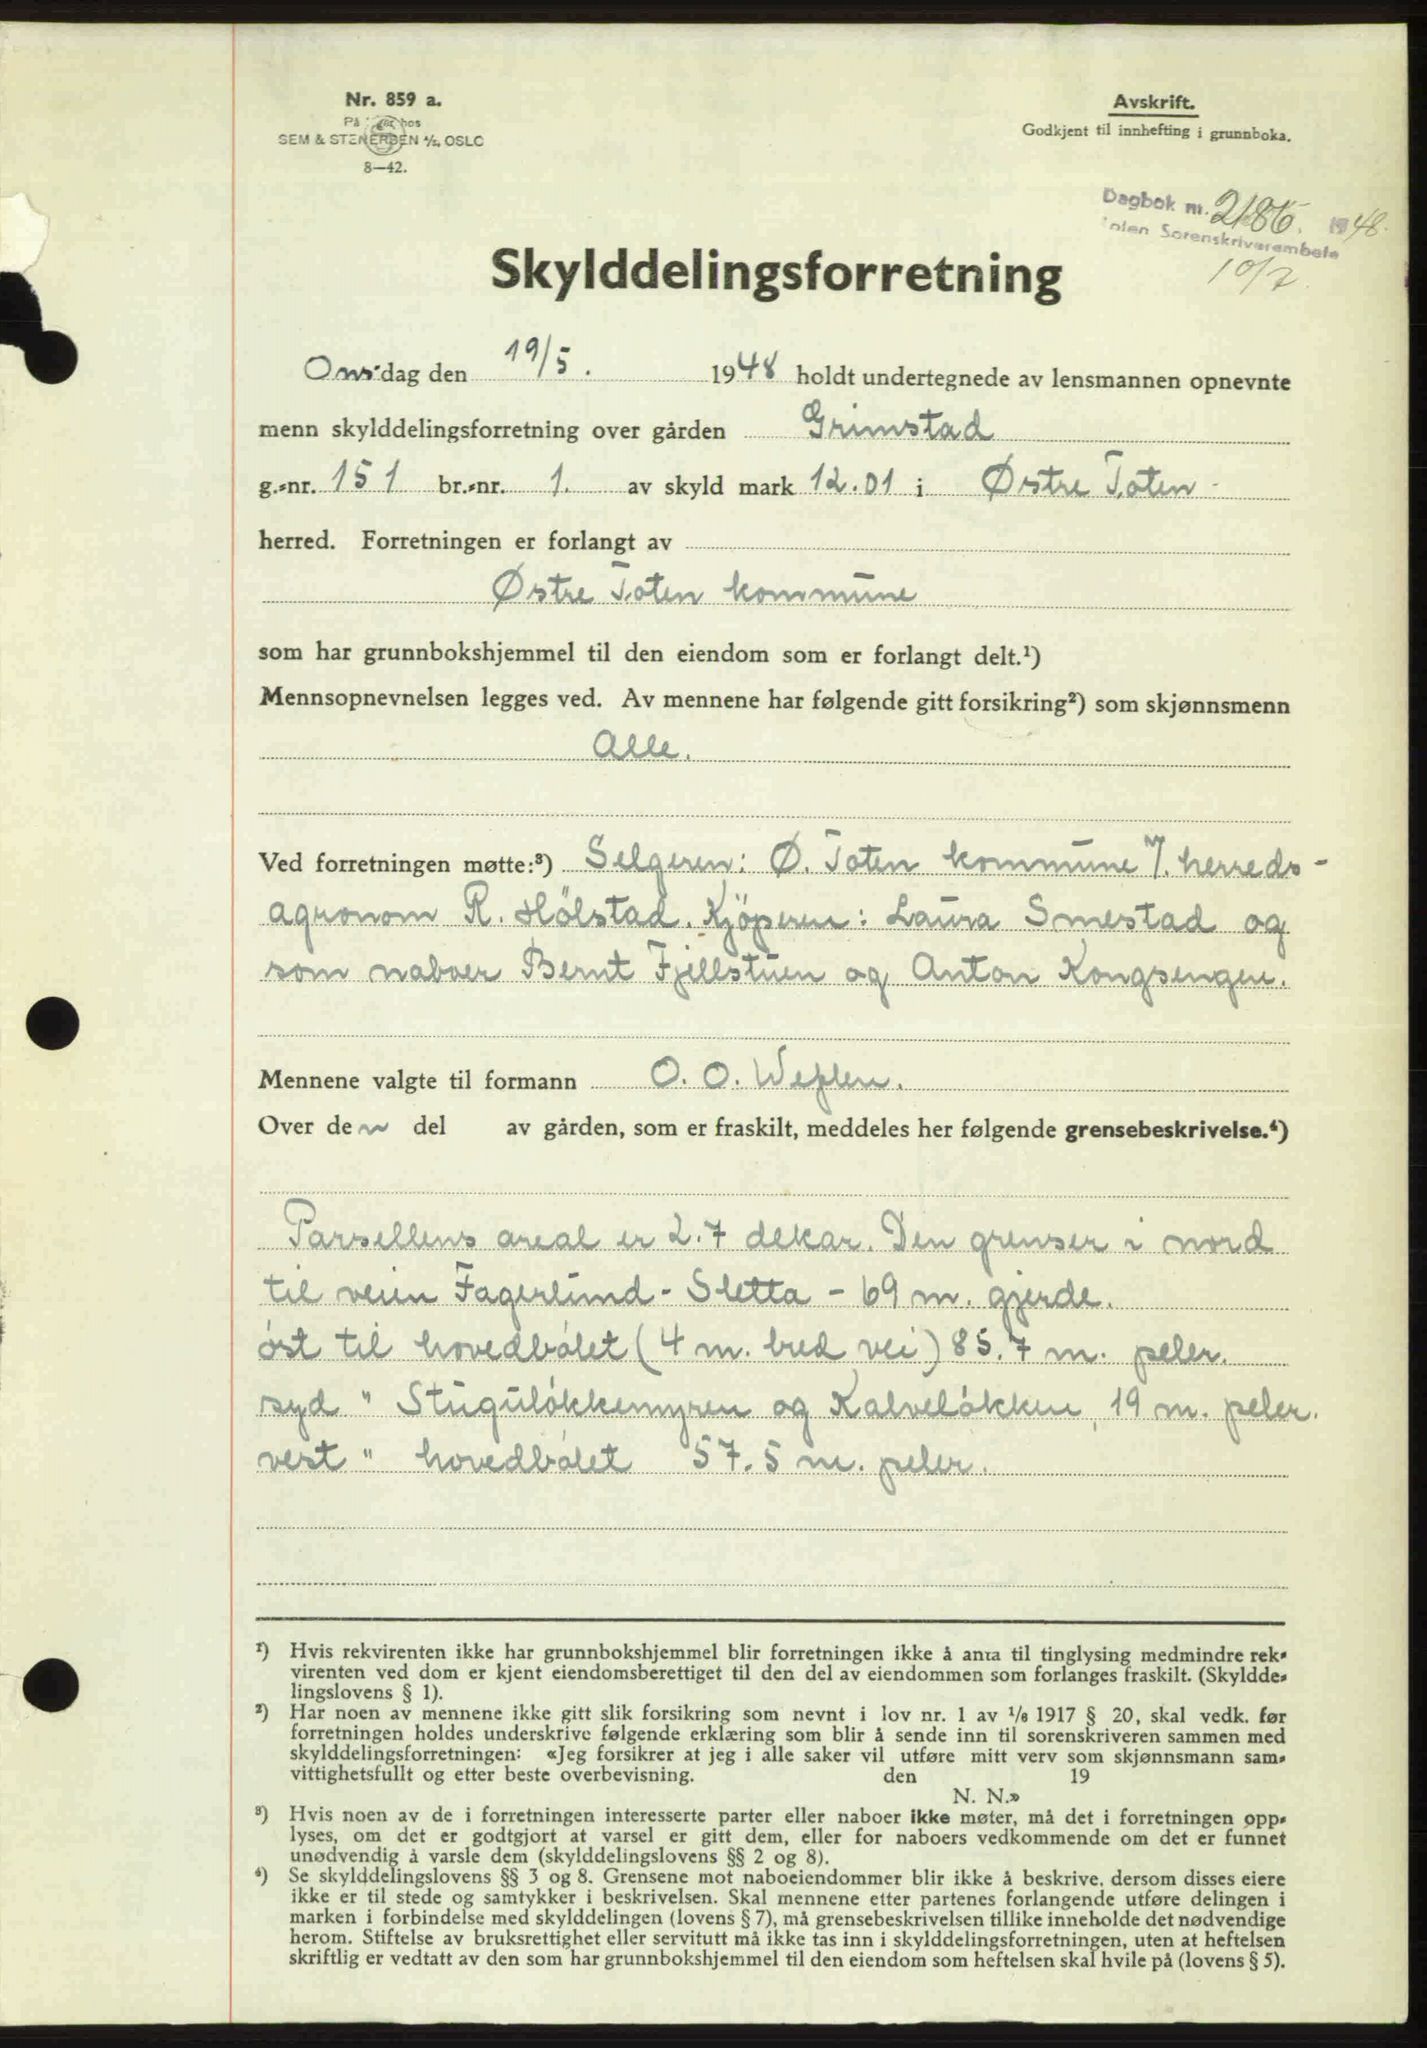 Nr. 859 a.
På hos
SEM & STENERSEN A/S, OSLO
8—42.
Avskrift.
Godkjent til innhefting i grunnboka.
Dagbok nr. 2186. 1948.
Toten Sorenskriverembete
10/7
Skylddelingsforretning
Onsdag den 19/5. 1948 holdt undertegnede av lensmannen opnevnte
menn skylddelingsforretning over gården Grimstad
g.-nr. 151 br.-nr. 1. av skyld mark 12.01 i Østre Toten
herred. Forretningen er forlangt av
Østre Toten kommune
som har grunnbokshjemmel til den eiendom som er forlangt delt.¹)
Mennsopnevnelsen legges ved. Av mennene har følgende gitt forsikring²) som skjønnsmenn
Alle.
Ved forretningen møtte:³) Selgeren: Ø. Toten kommune v/ herreds-
agronom R. Hölstad. Kjöperen: Laura Smestad og
som naboer Bernt Fjellstuen og Anton Kongsengen.
Mennene valgte til formann O. O. Weflen.
Over den del av gården, som er fraskilt, meddeles her følgende grensebeskrivelse.⁴)
Parsellens areal er 2.7 dekar. Den grenser i nord
til veien Fagerlund - Sletta - 69 m. gjerde.
öst til hovedbölet (4 m. bred vei) 85.7 m. peler.
syd " Stuguløkkemyren og Kalveløkken, 19 m. peler.
vest " hovedbölet 57.5 m. peler.
¹) Hvis rekvirenten ikke har grunnbokshjemmel blir forretningen ikke å anta til tinglysing medmindre rek-
virenten ved dom er kjent eiendomsberettiget til den del av eiendommen som forlanges fraskilt. (Skyldde-
lingslovens § 1).
²) Har noen av mennene ikke gitt slik forsikring som nevnt i lov nr. 1 av 1/6 1917 § 20, skal vedk. før
forretningen holdes underskrive følgende erklæring som blir å sende inn til sorenskriveren sammen med
skylddelingsforretningen: «Jeg forsikrer at jeg i alle saker vil utføre mitt verv som skjønnsmann sam-
vittighetsfullt og etter beste overbevisning. den 19
N. N.»
³) Hvis noen av de i forretningen interesserte parter eller naboer ikke møter, må det i forretningen opp-
lyses, om det er godtgjort at varsel er gitt dem, eller for naboers vedkommende om det er funnet
unødvendig å varsle dem (skylddelingslovens §§ 2 og 8).
⁴) Se skylddelingslovens §§ 3 og 8. Grensene mot naboeiendommer blir ikke å beskrive, dersom disses eiere
ikke er til stede og samtykker i beskrivelsen. Skal mennene etter partenes forlangende utføre delingen i
marken i forbindelse med skylddelingen (lovens § 7), må grensebeskrivelsen tillike inneholde det nødvendige
herom. Stiftelse av bruksrettighet eller servitutt må ikke tas inn i skylddelingsforretningen, uten at heftelsen
skriftlig er vedtatt av den som har grunnbokshjemmel til den eiendom som heftelsen skal hvile på (lovens § 5).